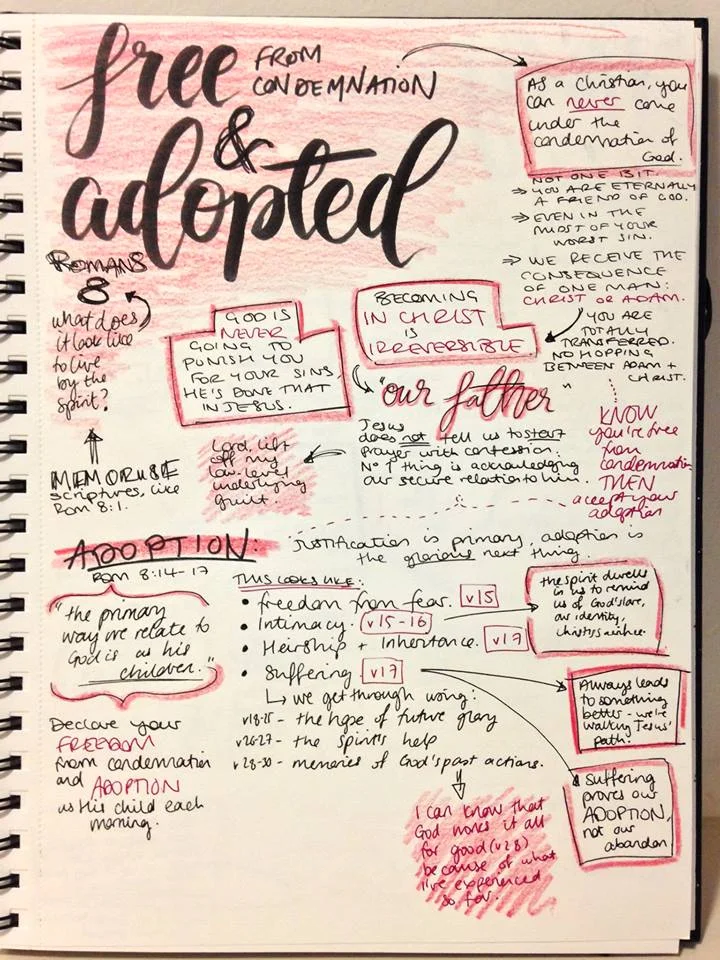 free FROM
CONDEMNATION
&
adopted
As a Christian, you
can never come
under the
condemnation of
God.
NOT ONE BIT.
⇒ YOU ARE ETERNALLY
A FRIEND OF GOD.
⇒ EVEN IN THE
MIDST OF YOUR
WORST SIN.
⇒ WE RECEIVE THE
CONSEQUENCE
OF ONE MAN:
CHRIST OR ADAM.
YOU ARE
TOTALLY
TRANSFERRED.
NO HOPPING
BETWEEN ADAM +
CHRIST.
ROMANS
8
what does
it look like
to live
by the
spirit?
MEMORISE
scriptures, like
Rom 8:1.
GOD IS
NEVER
GOING TO
PUNISH YOU
FOR YOUR SINS,
HE'S DONE THAT
IN JESUS.
BECOMING
IN CHRIST
IS
IRREVERSIBLE.
"our father"
Jesus
does not tell us to start
prayer with confession.
No 1 thing is acknowledging
our secure relation to him.
Lord, lift
off my
low-level
underlying
guilt.
KNOW
you're free
from
condemnation
THEN
accept your
adoption
ADOPTION:
Rom 8:14-17
Justification is primary, adoption is
the glorious next thing.
"the primary
way we relate to
God is as his
children."
Declare your
FREEDOM
from condemnation
and ADOPTION
as His child each
morning.
THIS LOOKS LIKE:
• freedom from fear. v15
• Intimacy. v15-16
• Heirship + Inheritance. v17
• Suffering v17
↳ we get through using:
v18-25 - the hope of future glory
v26-27 - the spirit's help
v28-30 - memories of God's past actions.
the spirit dwells
in us to remind
us of God's love,
our identity,
Always leads
to something
better - we're
walking Jesus'
path.
suffering
proves our
ADOPTION,
not our
abandon
I can know that
God works it all
for good (v28)
because of what
I've experienced
so far.